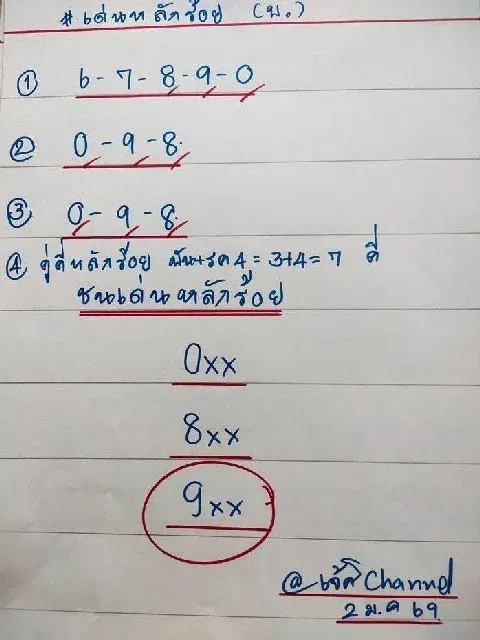 #เด่นหลักร้อย (บ.)
① 6-7-8-9-0
② 0-9-8.
③ 0-9-8.
④ คู่คี่หลักร้อย = 3+4=7 คี่
ชนเด่นหลักร้อย
0xx
8xx
9xx
@เจ๊ Channel
2 ม.ค 69